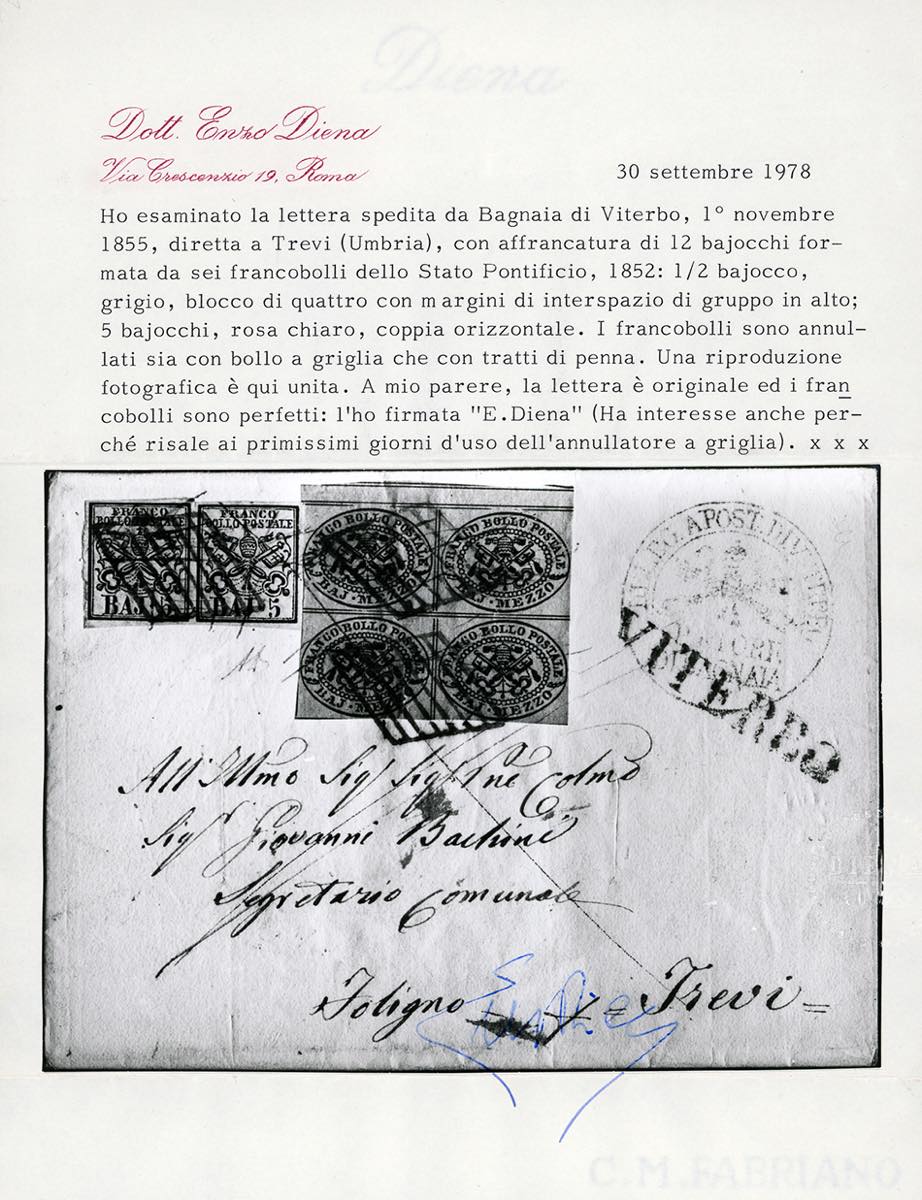 Diena
Dott. Enzo Diena
Via Crescenzio 19, Roma
30 settembre 1978
Ho esaminato la lettera spedita da Bagnaia di Viterbo, 1° novembre
1855, diretta a Trevi (Umbria), con affrancatura di 12 bajocchi for-
mata da sei francobolli dello Stato Pontificio, 1852: 1/2 bajocco,
grigio, blocco di quattro con margini di interspazio di gruppo in alto;
5 bajocchi, rosa chiaro, coppia orizzontale. I francobolli sono annul-
lati sia con bollo a griglia che con tratti di penna. Una riproduzione
fotografica è qui unita. A mio parere, la lettera è originale ed i fran
cobolli sono perfetti: l'ho firmata "E.Diena" (Ha interesse anche per-
ché risale ai primissimi giorni d'uso dell'annullatore a griglia). x x x
FRANCO BOLLO POSTALE BAJ
FRANCO BOLLO POSTALE BAJ 5
FRANCO BOLLO POSTALE BAJ · MEZZO
FRANCO BOLLO POSTALE BAJ · MEZZO
FRANCO BOLLO POSTALE BAJ · MEZZO
FRANCO BOLLO POSTALE BAJ · MEZZO
APOST. DI
VITERBO
All' Illmo Sig
Sigr Giovanni Bachini
Segretario Comunale
Foligno = Trevi =
C.M.FABRIANO